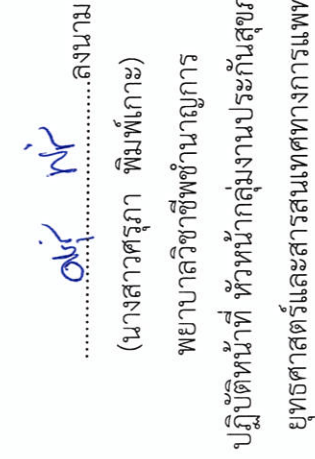 ........................ลงนาม
(นางสาวศรุภา พิมพ์เกาะ)
พยาบาลวิชาชีพชำนาญการ
ปฏิบัติหน้าที่ หัวหน้ากลุ่มงานประกันสุขภ
ยุทธศาสตร์และสารสนเทศทางการแพท